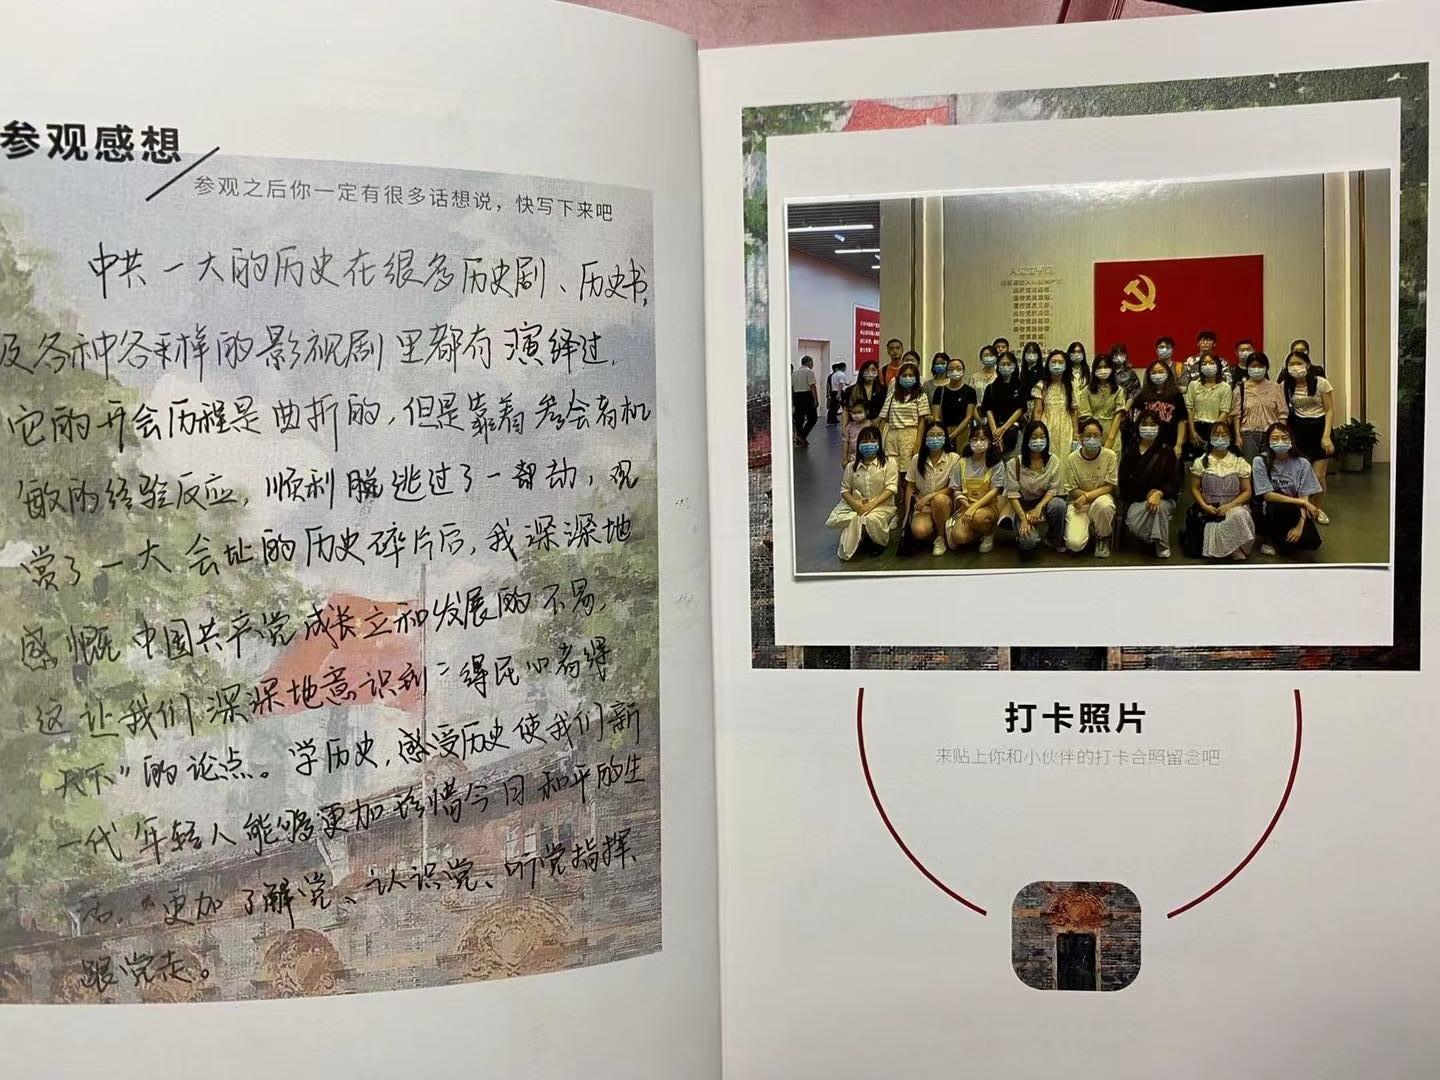 参观感想
参观之后你一定有很多话想说，快写下来吧
中共一大的历史在很多历史剧、历史书,
及各种各样的影视剧里都有演绎过,
它的开会历程是曲折的,但是靠着参会者机
敏的经验反应,顺利脱逃过了一劫,观
赏了一大会址的历史碎片后,我深深地
感慨中国共产党成长立和发展的不易,
这让我们深深地意识到"得民心者得
天下"的论点。学历史,感受历史使我们新
一代年轻人能够更加珍惜今日和平的生
活,更加了解党、认识党、听党指挥、
跟党走。
入党誓词
打卡照片
来贴上你和小伙伴的打卡合照留念吧